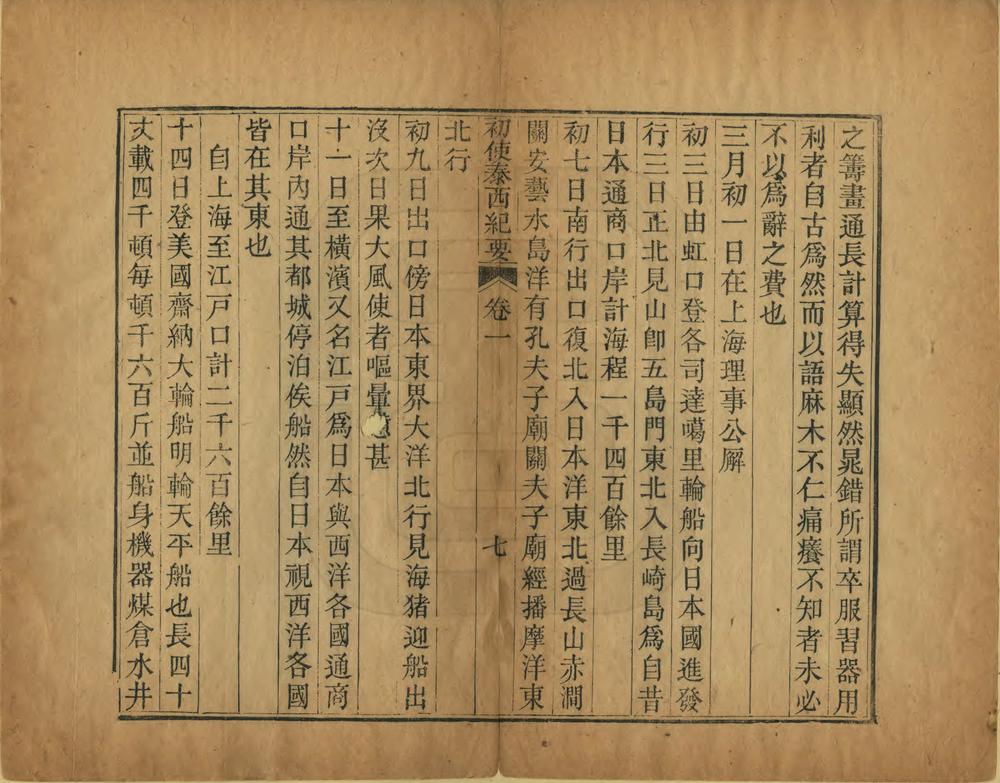 之籌畫通長計算得失顯然晁錯所謂卒服習器用
利者自古爲然而以語麻木不仁痛癢不知者未必
不以爲辭之費也
三月初一日在上海理事公廨
初三日由虹口登各司達噶里輪船向日本國進發
行三日正北見山卽五島門東北入長崎島爲自昔
日本通商口岸計海程一千四百餘里
初七日南行出口復北入日本洋東北過長山赤澗
關安藝水島洋有孔夫子廟關夫子廟經播摩洋東
初使泰西紀要 卷一 七
北行
初九日出口傍日本東界大洋北行見海猪迎船出
沒次日果大風使者嘔暈甚
十一日至橫濱又名江戸爲日本與西洋各國通商
口岸內通其都城停泊俟船然自日本視西洋各國
皆在其東也
自上海至江戸口計二千六百餘里
十四日登美國齋納大輪船明輪天平船也長四十
丈載四千頓每頓千六百斤並船身機器煤倉水井